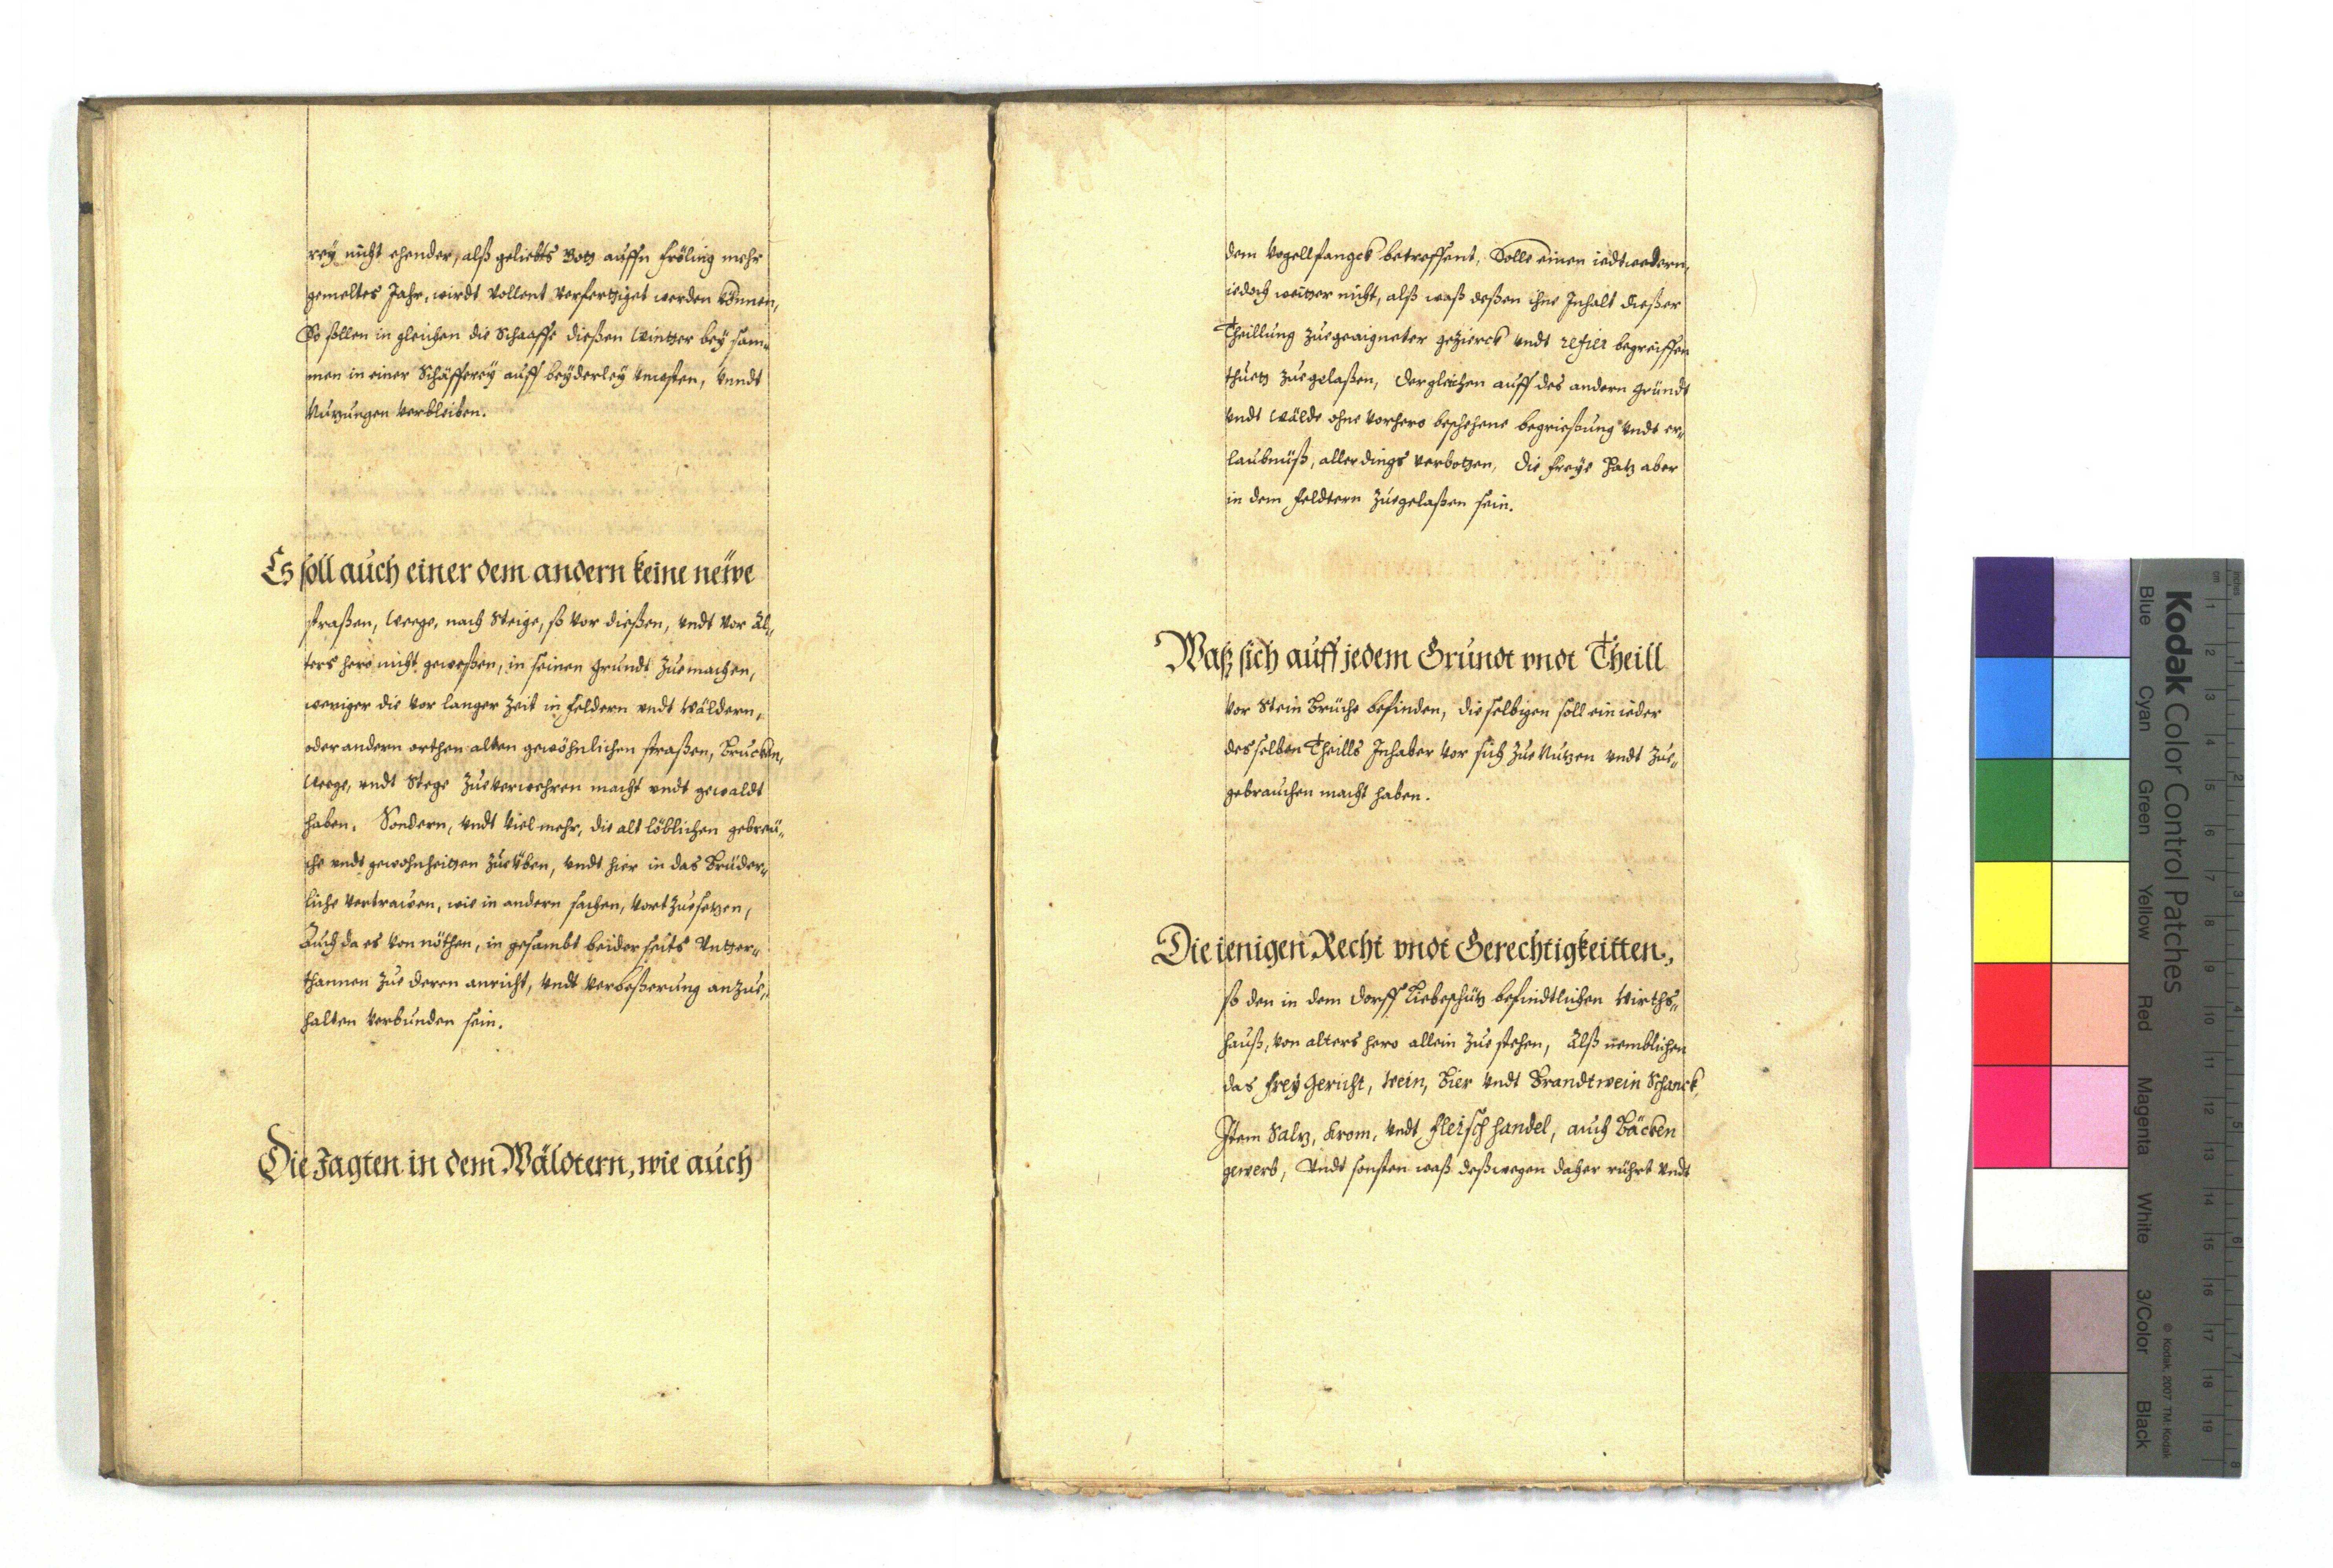 rey nicht ehender, alß geliebts Gott auffn Fröling mehr
gemeltes Jahr, wirdt vollent verfertiget werden können,
So sollen in gleichen die Schaaffe dießen Winter bey sam„
men in einer Schäfferey auff beyderley Unkosten, unndt
Nuzungen verbleiben.
Es soll auch einer dem andern keine newe
straßen, Weege, noch Steige, so vor dießen, undt vor Äl„
ters hero nicht geweßen, in seinen grundt zuemachen,
weniger die vor langer Zeit in Feldern undt Wäldern,
oder andern orthen alten gewöhnlichen straßen, Brucken,
Weege, undt Stege zueverwehren macht undt gewaldt
haben. Sondern, undt viel mehr, die alt löblichen gebreü„
che undt gewohnheitten zueüben, undt hier in das Brüder„
liche vertrawen, wie in andern sachen, vort zuesetzen,
Auch da es von nöthen, in gesambt beiderseits Unter„
thannen zue deren anricht, undt verbeßerung anzue„
halten verbunden sein.
Die Jagten in dem Wäldtern, wie auch
dem Vogellfangck betreffent, Solle einen iedtwedern,
iedoch weiter nicht, alß waß deßen ihne Inhalt dießer
Theillung zuegeaigneter gezierck undt refier begreiffen
thuet zuegelaßen, dergleichen auff des andern gründt
undt Wälde ohne vorhero beschehene begrießung undt er„
laubnüß, allerdings verbotten, die freye Hatz aber
in dem Feldtern zuegelaßen sein.
Waß sich auff jedem Grundt vndt Theill
vor Stein Brüche befinden, dieselbigen soll ein ieder
desselben Theills Inhaber vor sich zue Nutzen undt zue„
gebrauchen macht haben.
Die ienigen Recht vndt Gerechtigkeitten,
so den in dem Dorff Liebeschütz befindtlichen Wirths„
hauß, von alters hero allein zue stehen, Alß nemblichen
das Frey Gericht, Wein, Bier undt Brandtwein Schanck,
Item Saltz, Krom, undt Fleisch handel, auch Bäcken
gewerb, Undt sonsten waß deßwegen daher rührt undt
Kodak Color Control Patches
Blue Cyan Green Yellow Red Magenta White 3/Color Black
© Kodak, 2007 TM: Kodak
inches 1 2 3 4 5 6 7 8
cm 1 2 3 4 5 6 7 8 9 10 11 12 13 14 15 16 17 18 19